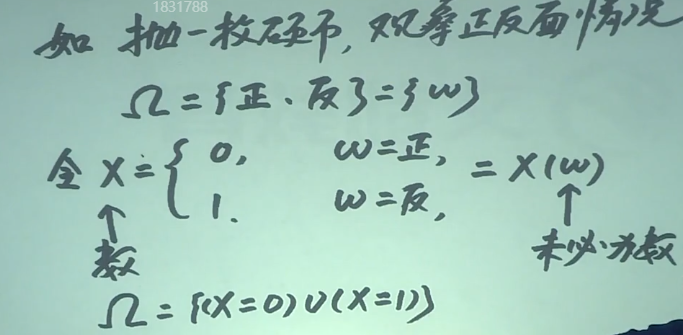 1831788
如 抛一枚硬币, 观察正反面情况
Ω = {正、反} = {ω}
令 X = { 0, ω = 正,
1. ω = 反, = X(ω)
↑ ↑
数 未必为数
Ω = {(X=0)∪(X=1)}